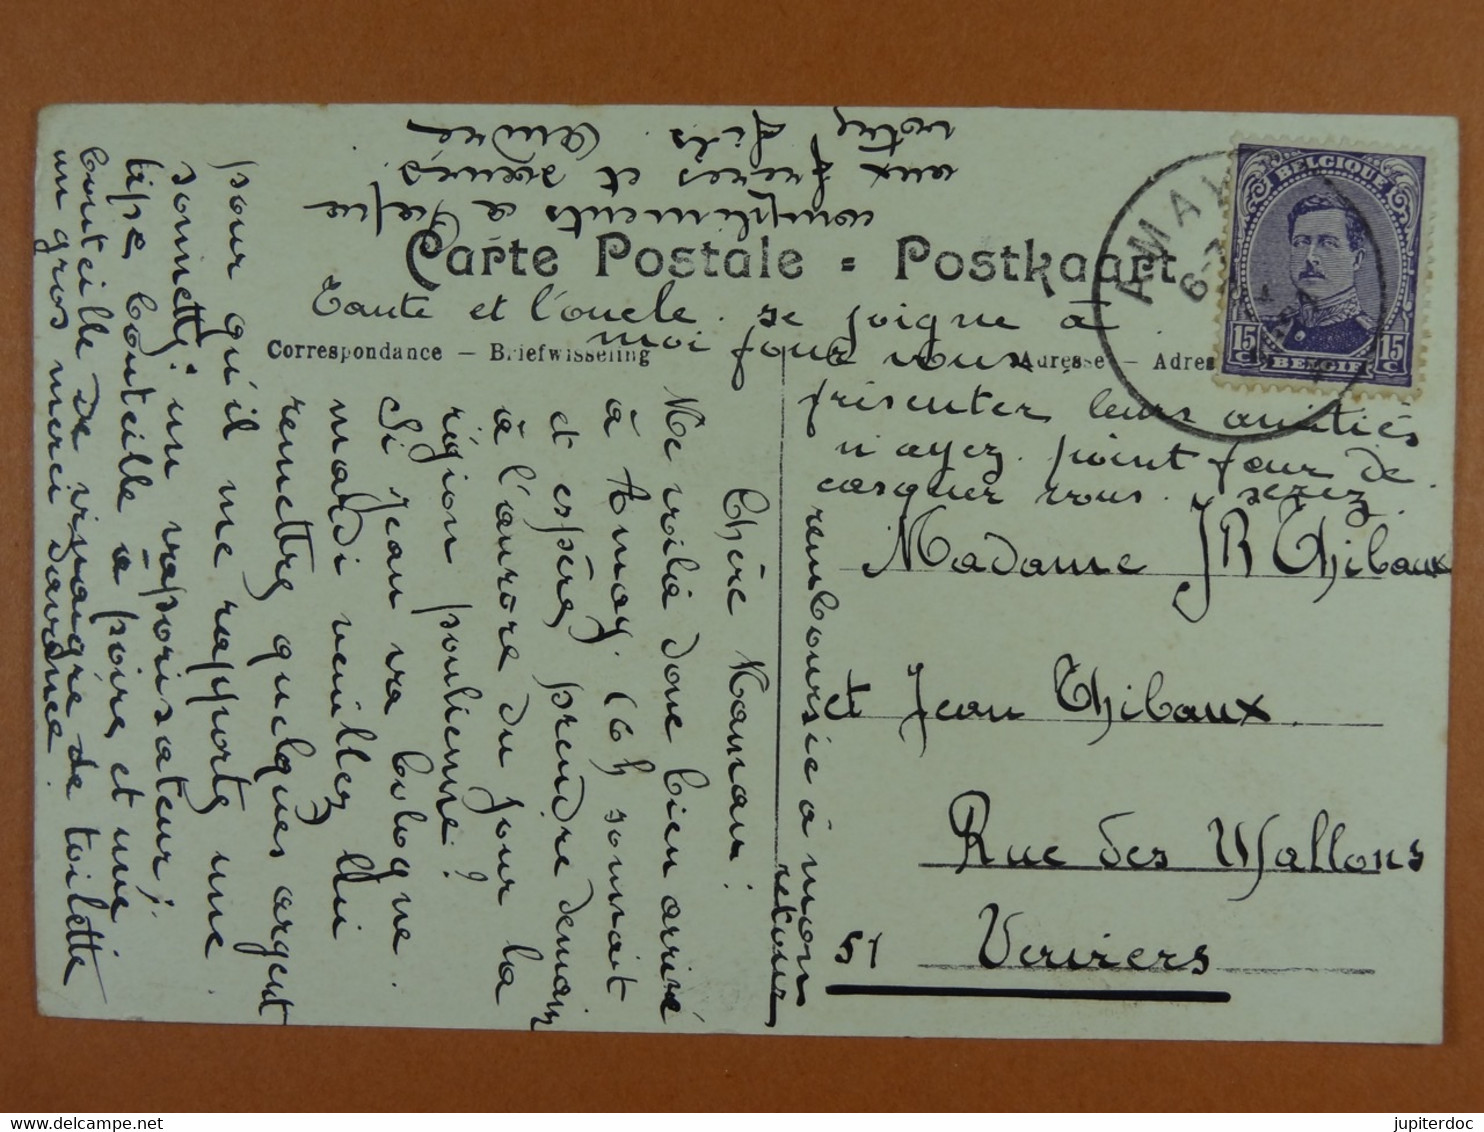 Carte Postale = Postkaart
Correspondance — Briefwisseling
Adresse — Adres
BELGIQUE
15 C
15 C
BELGIË
AMAY
Chère Maman!
Me voilà donc bien arrivé
à Amay. (6h sonnait
et espère prendre demain
à l'aurore du jour la
région poulienne?
Si Jean va
mardi veuillez lui
remettre quelques argent
pour qu'il me rapporte une
sonnette; un vaporisateur;
tipe bouteille à poire et une
bouteille de vinaigre de toilette
un gros merci d'avance.
Tante et l'oncle. se joigne à
moi pour vous
présenter leurs amitiés
n'ayez point peur de
casquer vous. serez
remboursée à mon
retour
compliments à
aux frères et sœurs.
votre fils. André
Madame JR Thibaux
et Jean Thibaux
Rue des Wallons
51 Verviers
jupiterdoc